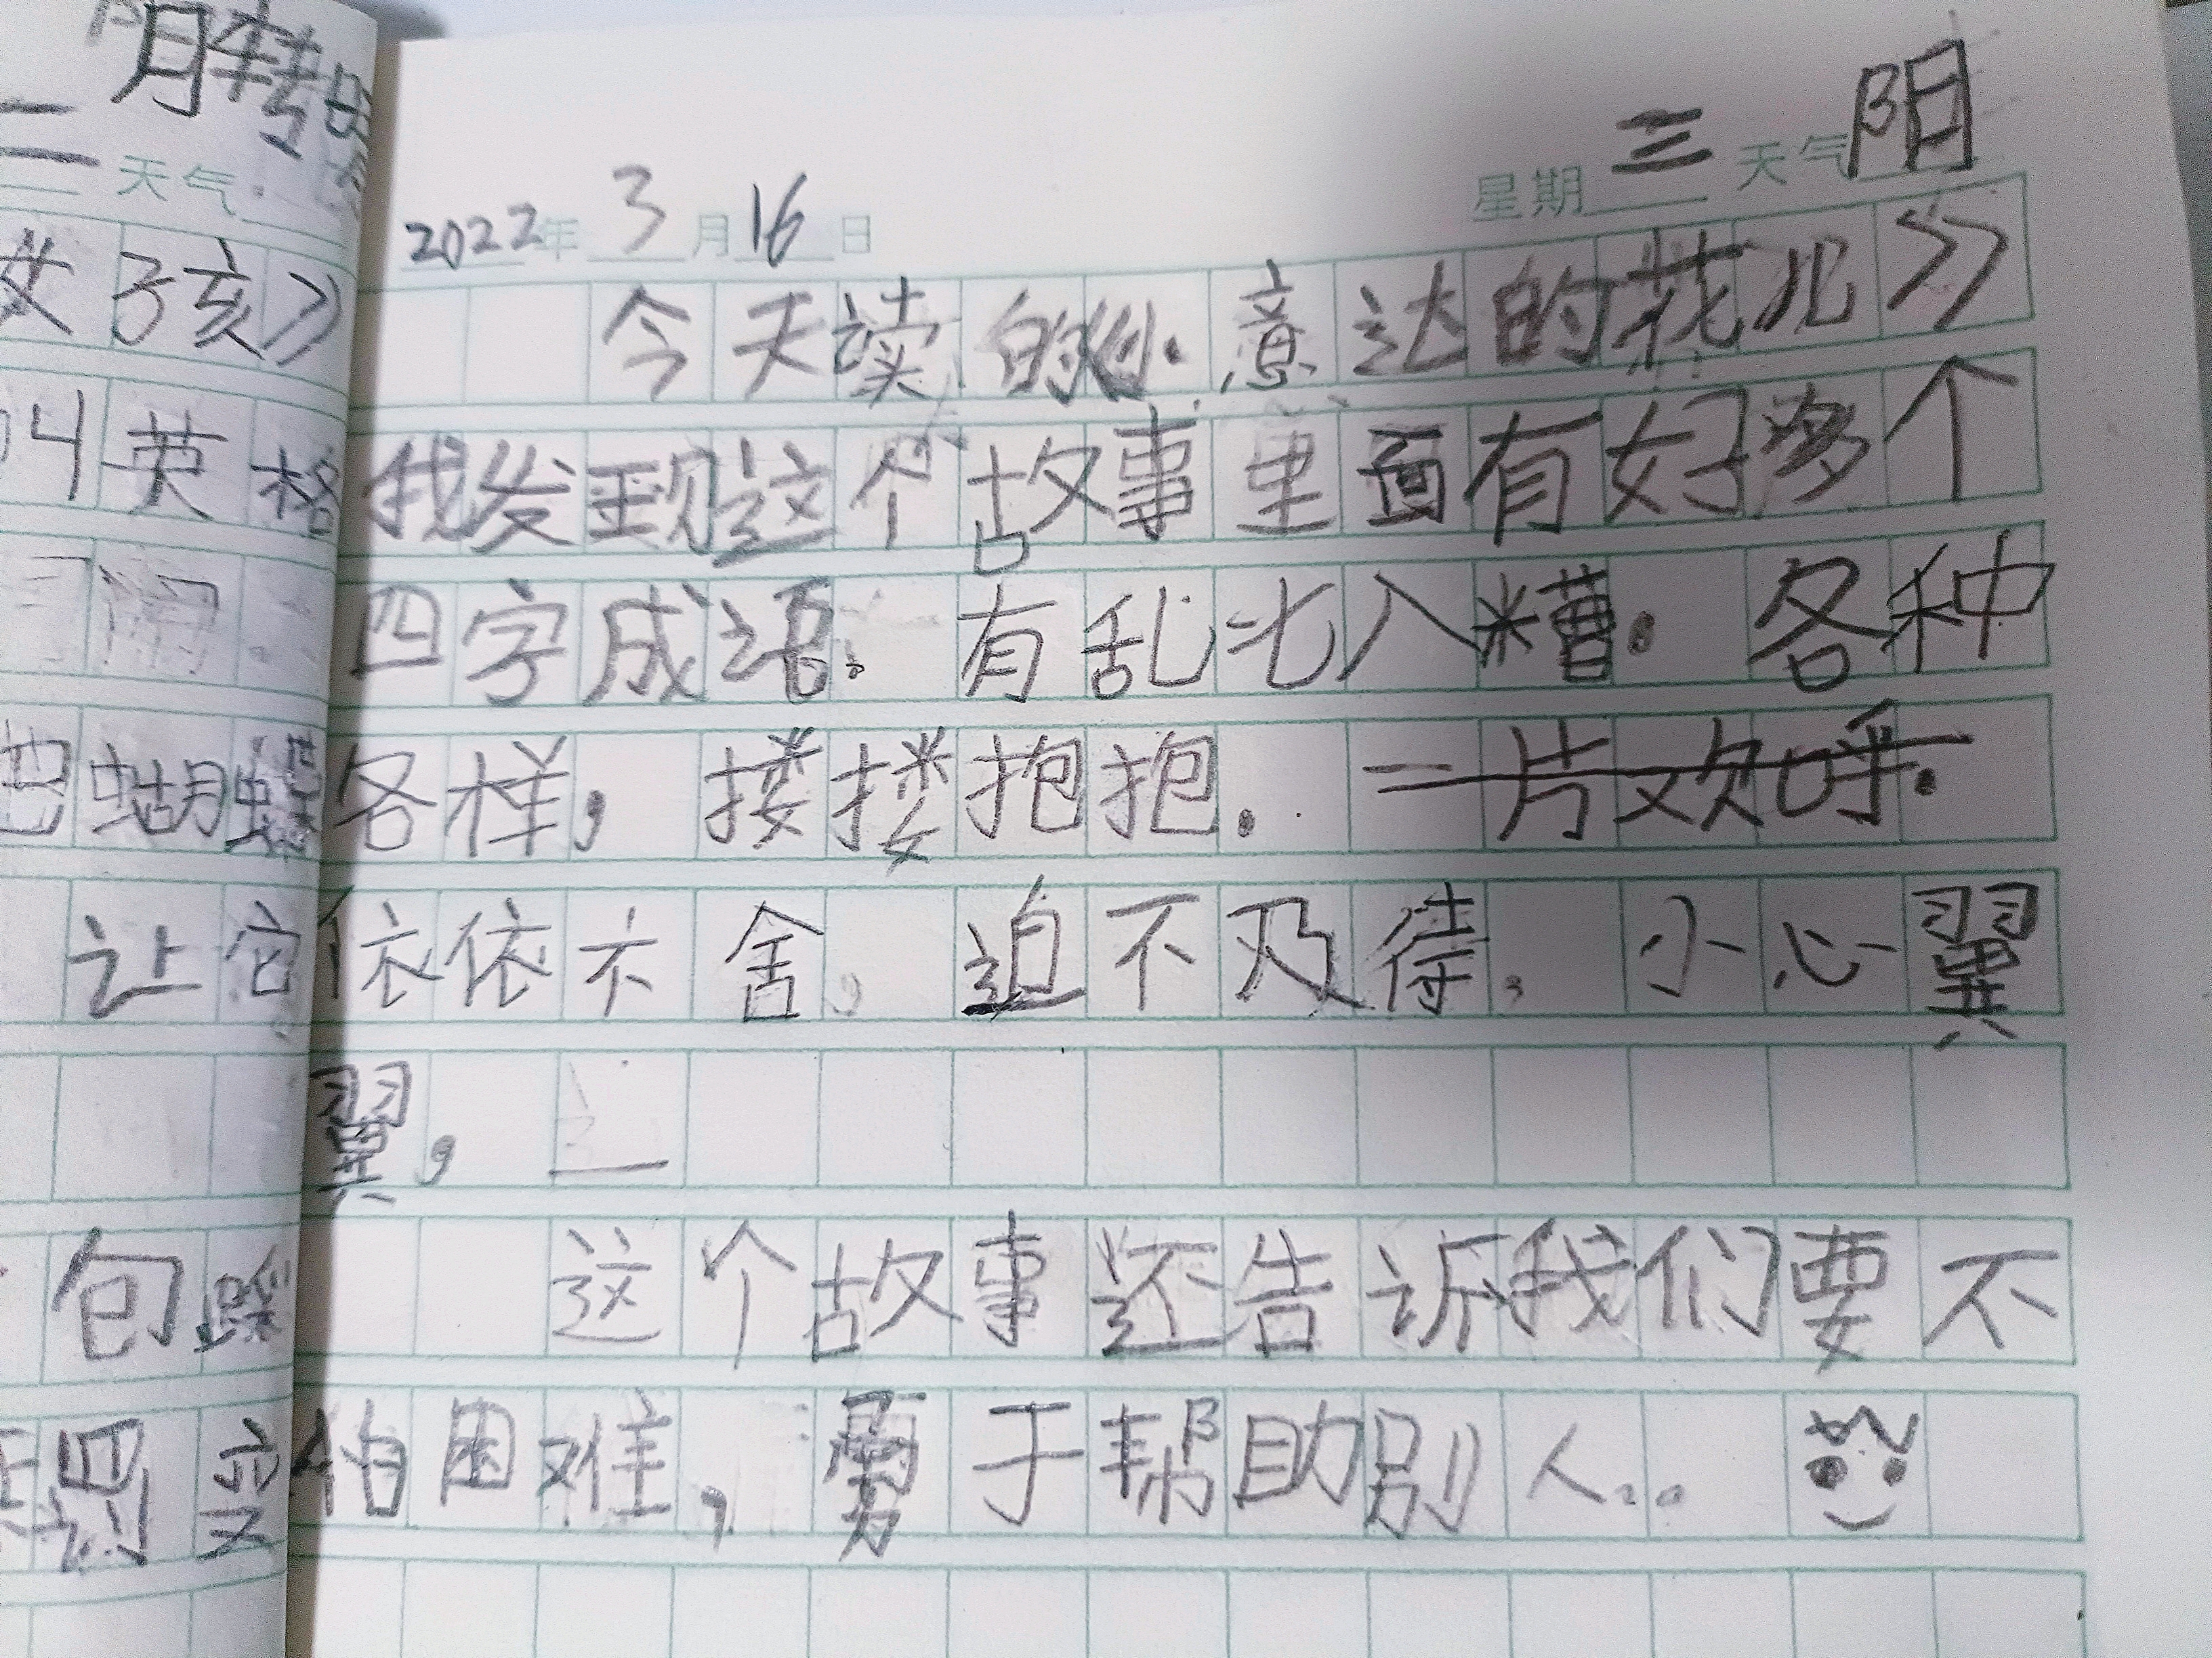 2022年 3月 16日 星期三 天气阳
今天读的《小意达的花儿》
我发现这个故事里面有好多个
四字成语。有乱七八糟。各种
各样，搂搂抱抱。一片欢呼。
依依不舍，迫不及待，小心翼
翼，
这个故事还告诉我们要不
怕困难，勇于帮助别人。
二 天气
女孩》
叫英格
蝴蝶
让它
包踩
罚变